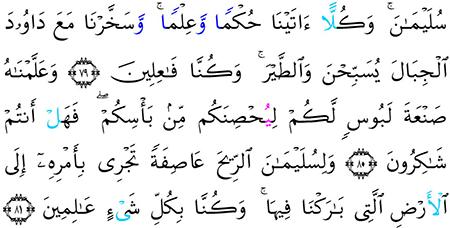 سُلَيْمَـٰنَ ۚ وَكُلًّا ءَاتَيْنَا حُكْمًا وَعِلْمًا ۚ وَسَخَّرْنَا مَعَ دَاوُۥدَ
ٱلْجِبَالَ يُسَبِّحْنَ وَٱلطَّيْرَ ۚ وَكُنَّا فَـٰعِلِينَ ۝٧٩ وَعَلَّمْنَـٰهُ
صَنْعَةَ لَبُوسٍ لَّكُمْ لِيُحْصِنَكُم مِّنۢ بَأْسِكُمْ ۖ فَهَلْ أَنتُمْ
شَـٰكِرُونَ ۝٨٠ وَلِسُلَيْمَـٰنَ ٱلرِّيحَ عَاصِفَةً تَجْرِى بِأَمْرِهِۦٓ إِلَى
ٱلْأَرْضِ ٱلَّتِى بَـٰرَكْنَا فِيهَا ۚ وَكُنَّا بِكُلِّ شَىْءٍ عَـٰلِمِينَ ۝٨١